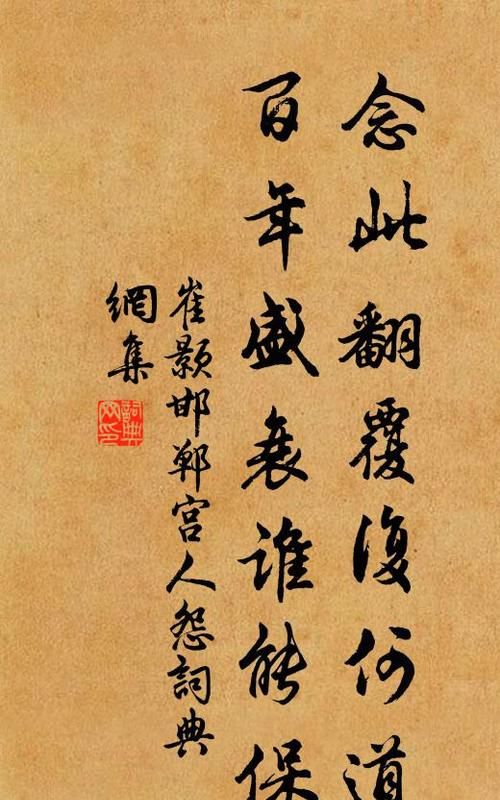 念此翻覆復何道
百年盛衰誰能保
崔顥邯鄲宮人怨詞典
網集
詞典
网印